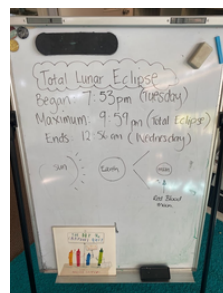 Total Lunar Eclipse
Began: 7:53pm (Tuesday)
Maximum: 9:59pm (Total Eclipse)
Ends: 12:56am (Wednesday)
Sun
Earth
moon
Red Blood
moon
THE DAY THE
CRAYONS QUIT